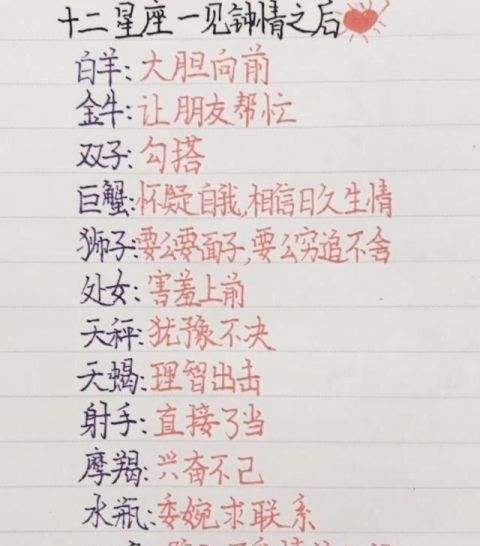 十二星座一见钟情之后
白羊:大胆向前
金牛:让朋友帮忙
双子:勾搭
巨蟹:怀疑自我,相信日久生情
狮子:要么要面子,要么穷追不舍
处女:害羞上前
天秤:犹豫不决
天蝎:理智出击
射手:直接了当
摩羯:兴奋不已
水瓶:委婉求联系